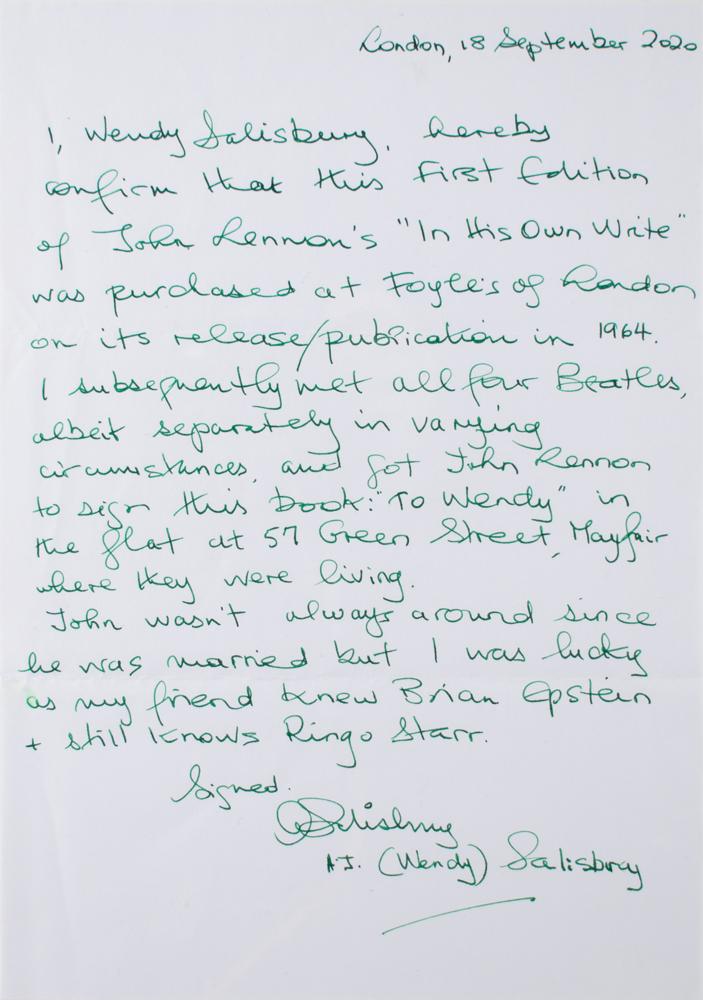 London, 18 September 2020
I, Wendy Salisbury, hereby
confirm that this First Edition
of John Lennon's "In His Own Write"
was purchased at Foyle's of London
on its release/publication in 1964.
I subsequently met all four Beatles,
albeit separately in varying
circumstances, and got John Lennon
to sign this book: "To Wendy" in
the flat at 57 Green Street, Mayfair
where they were living.
John wasn't always around since
he was married but I was lucky
as my friend knew Brian Epstein
+ still knows Ringo Starr.
Signed.
Salisbury
A.J. (Wendy) Salisbury